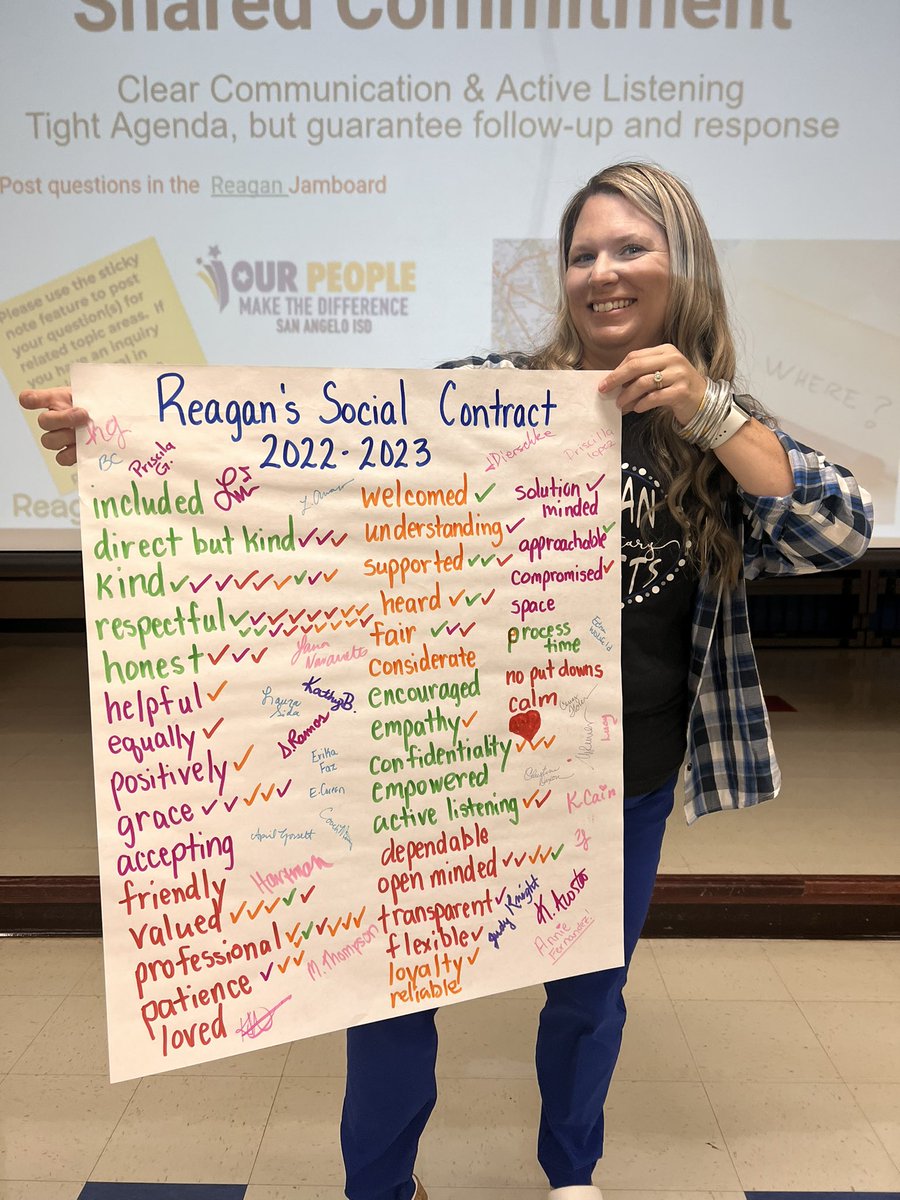 Shared Commitment
Clear Communication & Active Listening
Tight Agenda, but guarantee follow-up and response
Post questions in the Reagan Jamboard
Please use the sticky
note feature to post
your question(s) for
related topic areas. If
you have an inquiry
in
OUR PEOPLE
MAKE THE DIFFERENCE
SAN ANGELO ISD
WHERE?
Reagan's Social Contract
2022-2023
hg
BC
Priscila G.
J Dierschke
Priscilla Lopez
included
direct but kind
kind
respectful
honest
helpful
equally
positively
grace
accepting
friendly
valued
professional
patience
loved
Laura Sida
Kathy B.
S. Ramos
Erika Faz
E. Curran
April Gossett
Hartman
M. Thompson
welcomed
understanding
supported
heard
fair
considerate
encouraged
empathy
confidentiality
empowered
active listening
dependable
open minded
transparent
flexible
loyalty
reliable
solution
minded
approachable
compromised
space
process
time
no put downs
calm
Lucy
K. Cain
Judy Knight
K. Acosta
Annie Fernandez